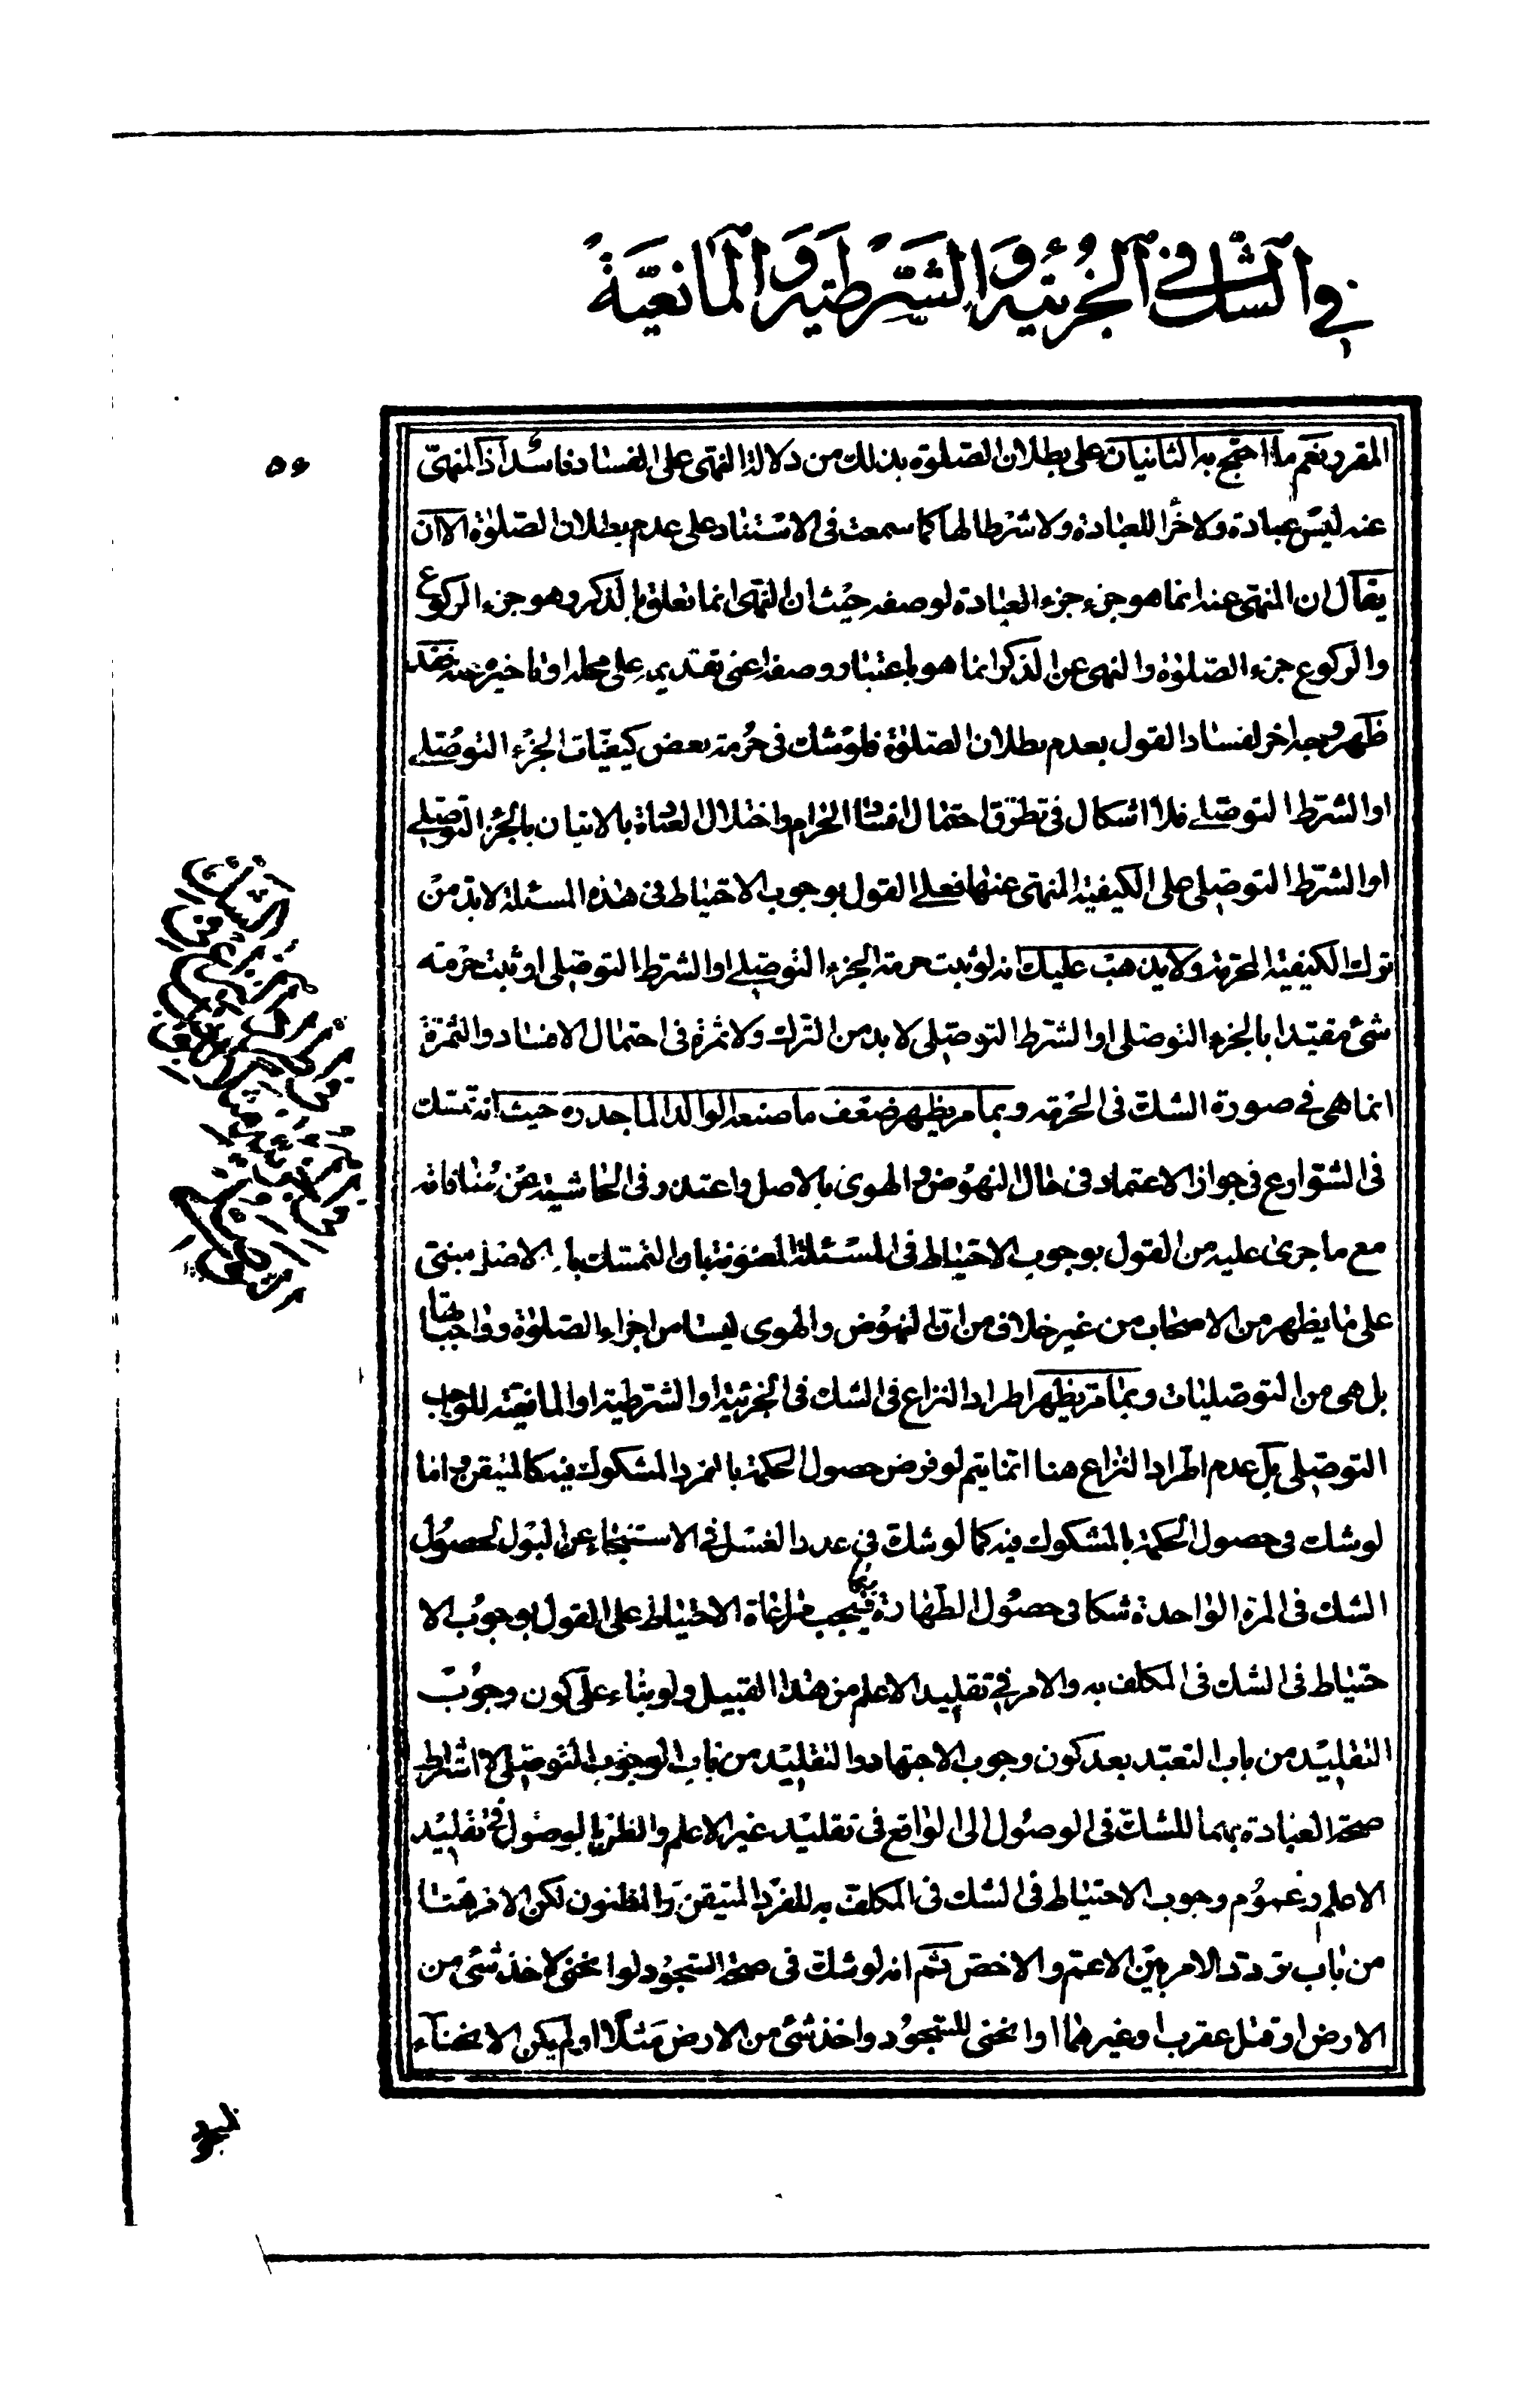 في الشك في الجزئية والشرطية والمانعية
٥٦
المقرر نعم ما احتج به الثانيان على بطلان الصلوة بذلك من دلالة النهى على الفساد فاسد اذ المنهىّ
عنه ليس عبادة ولا جزا للعبادة ولا شرطا لها كما سمعت فى الاستناد على عدم بطلان الصّلوة الا ان
يقال ان المنهى عنه انما هو جزء جزء العبادة لوصفه حيث ان النهى انما تعلق بالذكر وهو جزء الركوع
والركوع جزء الصّلوة والنهى عن الذكر انما هو باعتبار وصفه اعنى تقديمه على محله او تاخيره عنه فقد
ظهر وجه اخر لفساد القول بعدم بطلان الصّلوة فلو شك فى حرمة بعض كيفيّات الجزء التوصّلى
او الشرط التوصّلى فلا اشكال فى تطرّق احتمال افساد الحرام واختلال العبادة بالاتيان بالجزء التوصّلى
او الشرط التوصّلى على الكيفية المنهى عنها فعلى القول بوجوب الاحتياط فى هذه المسئلة لا بدّ من
ترك الكيفية المحرمة ولا يذهب عليك انه لو ثبت حرمة الجزء التوصّلى او الشرط التوصّلى او ثبت حرمة
شئ مقيّدا بالجزء التوصلى او الشرط التوصّلى لا بد من الترك ولا ثمرة فى احتمال الافساد والثمرة
انما هى فى صورة الشك فى الحرمة وبما مر يظهر ضعف ما صنعه الوالد الماجد ره حيث انه تمسّك
فى الشوارع فى جواز الاعتماد فى حال النهوض والهوى بالاصل واعتذر فى الحاشية عن منافاته
مع ما جرى عليه من القول بوجوب الاحتياط فى المسئلة المعنونة بان التمسّك بالاصل مبنى
على ما يظهر من الاصحاب من غير خلاف من ان النهوض والهوى ليسا من اجزاء الصّلوة وواجباتها
بل هى من التوصّليات وبما مرّ يظهر اطراد النزاع فى الشك فى الجزئية او الشرطية او المانعيّة للواجب
التوصّلى بل عدم اطراد النزاع هنا انّما يتم لو فرض حصول الحكمة بالفرد المشكوك فيه كالمتيقن واما
لو شك فى حصول الحكمة بالمشكوك فيه كما لو شك فى عدد الغسل فى الاستنجاء عن البول لحصول
الشك فى المرة الواحدة شكا فى حصول الطّهارة فيجب مراعاة الاحتياط على القول بوجوب الا
حتياط فى الشك فى المكلف به والامر فى تقليد الاعلم من هذا القبيل ولو بناء على كون وجوب
التقليد من باب التعبّد بعد كون وجوب الاجتهاد والتقليد من باب الوجوب التوصّلى لاشتراط
صحة العبادة بهما للشكّ فى الوصول الى الواقع فى تقليد غير الاعلم والظن بالوصول فى تقليد
الاعلم وعموم وجوب الاحتياط فى الشك فى المكلّف به للفرد المتيقن والمظنون لكن الامر هنا
من باب تردّد الامر بين الاعمّ والاخصّ ثم انه لو شك فى صحة السّجود لو انحنى لاخذ شئ من
الارض او قتل عقرب او غيرهما او انحنى للسّجود واخذ شئ من الارض مثلا او لم يكن الانحناء